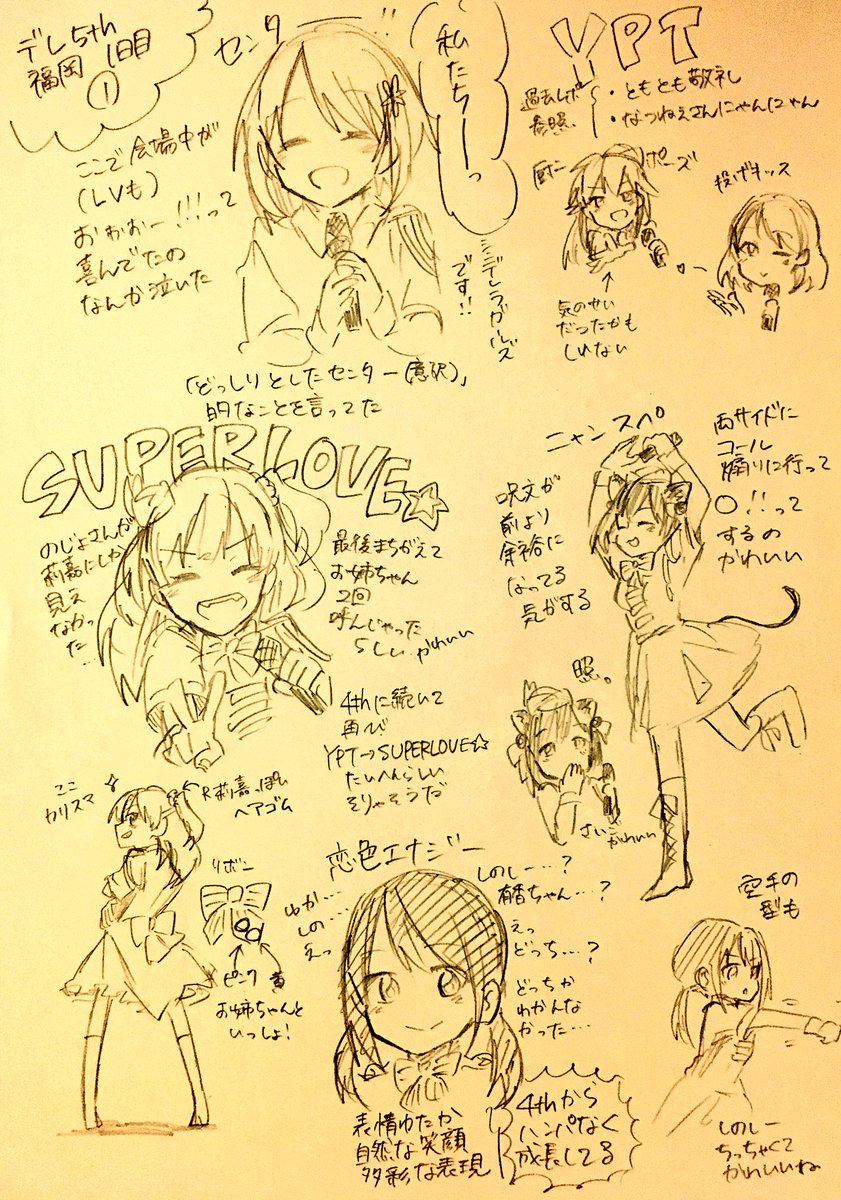 デレ5th
福岡 1日目
①
センター!!
私たちーっ
シンデレラガールズ
です!!
ここで会場中が
(LVも)
おおおー!!!って
喜んでたの
なんか泣いた
「どっしりとしたセンター(意訳)」
的なことを言ってた
YPT
過去レポ
参照
・ともとも敬礼
・なつねえさんにゃんにゃん
ポーズ
気のせい
だったかも
しれない
投げキッス
SUPERLOVE☆
のじょさんが
莉嘉にしか
見え
なかっ
た…
最後まちがえて
お姉ちゃん
2回
呼んじゃった
らしい かわいい
4thに続いて
再び
YPT→SUPERLOVE☆
たいへんらしい
そりゃそうだ
ニャンスペ
呪文が
前より
余裕に
なってる
気がする
両サイドに
コール
煽りに行って
○!!って
するの
かわいい
照。
さいこう
かわいい
ここ
カリスマ
R莉嘉っぽい
ヘアゴム
リボン
ピンク
黄
お姉ちゃんと
いっしょ!
恋色エナジー
ゆか…
しの…
えっ
しのしー…?
有香ちゃん…?
えっ
どっち…?
どっちか
わかんな
かった…
表情ゆたか
自然な笑顔
多彩な表現
4thから
ハンパなく
成長してる
空手の
型も
しのしー
ちっちゃくて
かわいいね